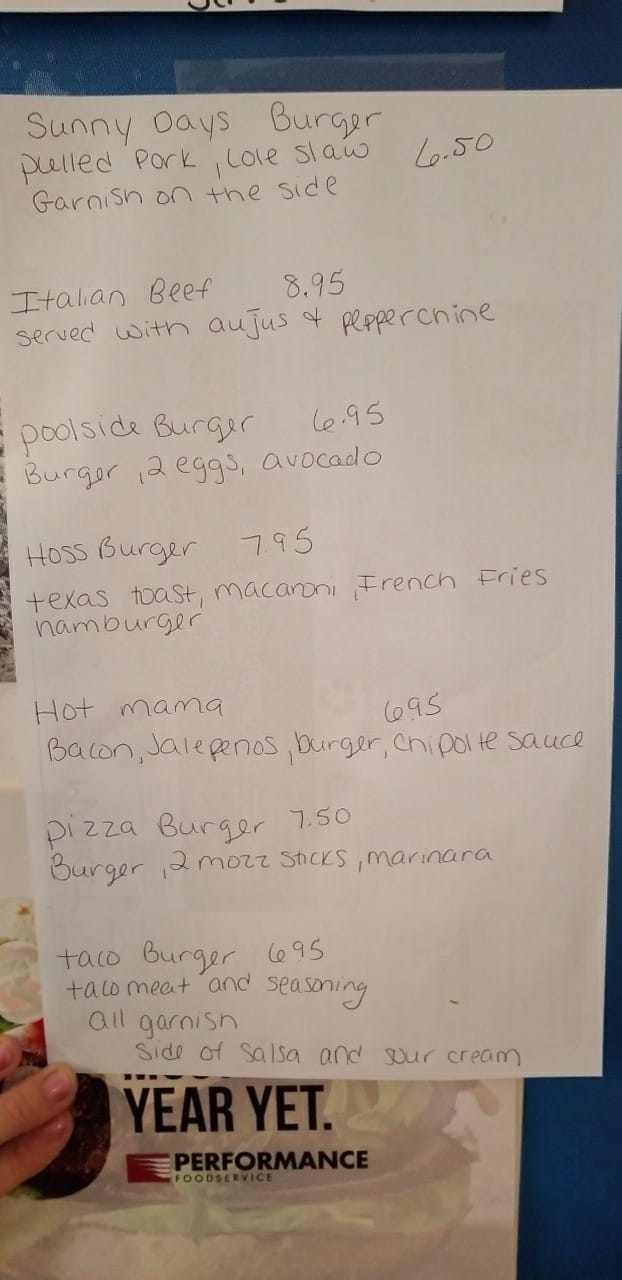 Sunny Days Burger
pulled Pork, Cole Slaw 6.50
Garnish on the side
Italian Beef 8.95
served with aujus & pepperchine
poolside Burger 6.95
Burger, 2 eggs, avocado
Hoss Burger 7.95
texas toast, macaroni, French Fries
hamburger
Hot mama 6.95
Bacon, Jalepenos, burger, Chipolte sauce
pizza Burger 7.50
Burger, 2 mozz sticks, marinara
taco Burger 6.95
taco meat and seasoning
all garnish
side of salsa and sour cream
YEAR YET.
PERFORMANCE
FOODSERVICE